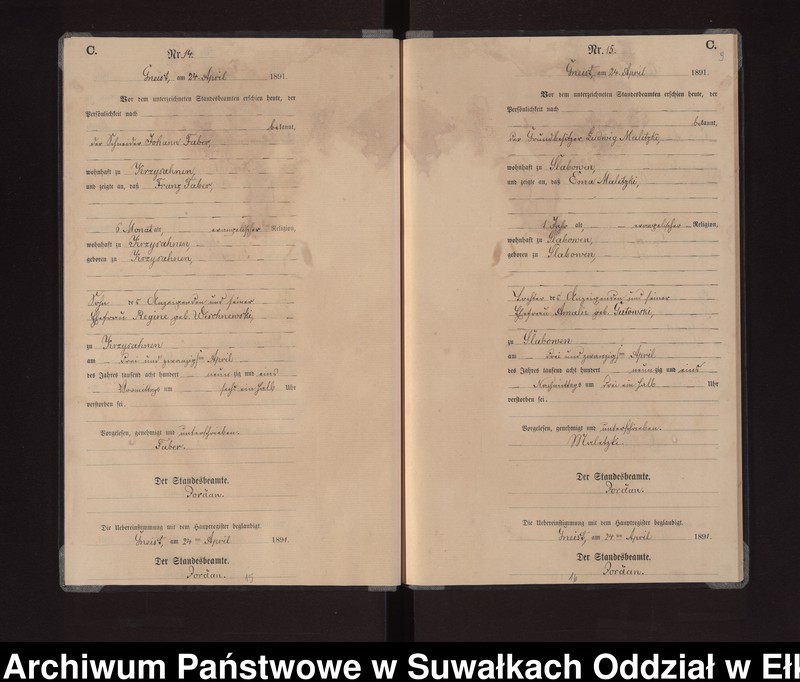 C.
Nr. 14.
Gneist, am 24. April 1891.
Vor dem unterzeichneten Standesbeamten erschien heute, der
Persönlichkeit nach
bekannt,
der Schneider Johann Faber,
wohnhaft zu Krzysahnen,
und zeigte an, daß Franz Faber,
6 Monat alt, evangelischer Religion,
wohnhaft zu Krzysahnen,
geboren zu Krzysahnen,
Sohn des Anzeigenden und seiner
Ehefrau Regine geb. Wischnewski,
zu Krzysahnen
am drei und zwanzigsten April
des Jahres tausend acht hundert neunzig und eins
Vormittags um sechs ein halb Uhr
verstorben sei.
Vorgelesen, genehmigt und unterschrieben.
Faber.
Der Standesbeamte.
Pordan.
Die Uebereinstimmung mit dem Hauptregister beglaubigt.
Gneist, am 24ten April 1891.
Der Standesbeamte.
Pordan.
Nr. 15.
C.
Gneist, am 24. April 1891.
Vor dem unterzeichneten Standesbeamten erschien heute, der
Persönlichkeit nach
bekannt,
der Grundbesitzer Ludwig Maletzki,
wohnhaft zu Slabowen,
und zeigte an, daß Ema Maletzki,
1 Jahr alt, evangelischer Religion,
wohnhaft zu Slabowen,
geboren zu Slabowen,
Tochter des Anzeigenden und seiner
Ehefrau Amalie geb. Gutowski,
zu Slabowen
am drei und zwanzigsten April
des Jahres tausend acht hundert neunzig und eins
Nachmittags um drei ein halb Uhr
verstorben sei.
Vorgelesen, genehmigt und unterschrieben.
Maletzki.
Der Standesbeamte.
Pordan.
Die Uebereinstimmung mit dem Hauptregister beglaubigt.
Gneist, am 24ten April 1891.
Der Standesbeamte.
Pordan.
Archiwum Państwowe w Suwałkach Oddział w Ełk